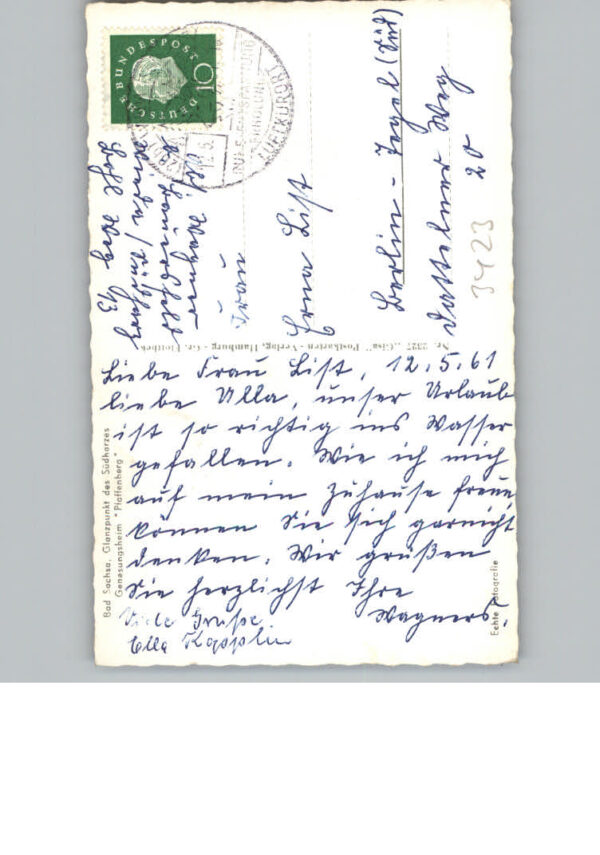 DEUTSCHE BUNDESPOST
10
12.5.
LUFTKURORT
Frau
Erna List
Berlin-Tegel (Süd)
Dattelner Weg
20
3423
Nr. 2327 „Gisa" Postkarten-Verlag, Hamburg - Gr. Flottbek
Bad Sachsa, Glanzpunkt des Südharzes
Genesungsheim "Pfaffenberg"
Echte Fotografie
Liebe Frau List, 12.5.61
liebe Ulla, unser Urlaub
ist so richtig ins Wasser
gefallen. Wie ich mich
auf mein Zuhause freue,
können Sie sich garnicht
denken. Wir grüßen
Sie herzlichst Ihre
Wagners.
Viele Grüße
Ella Kopplin